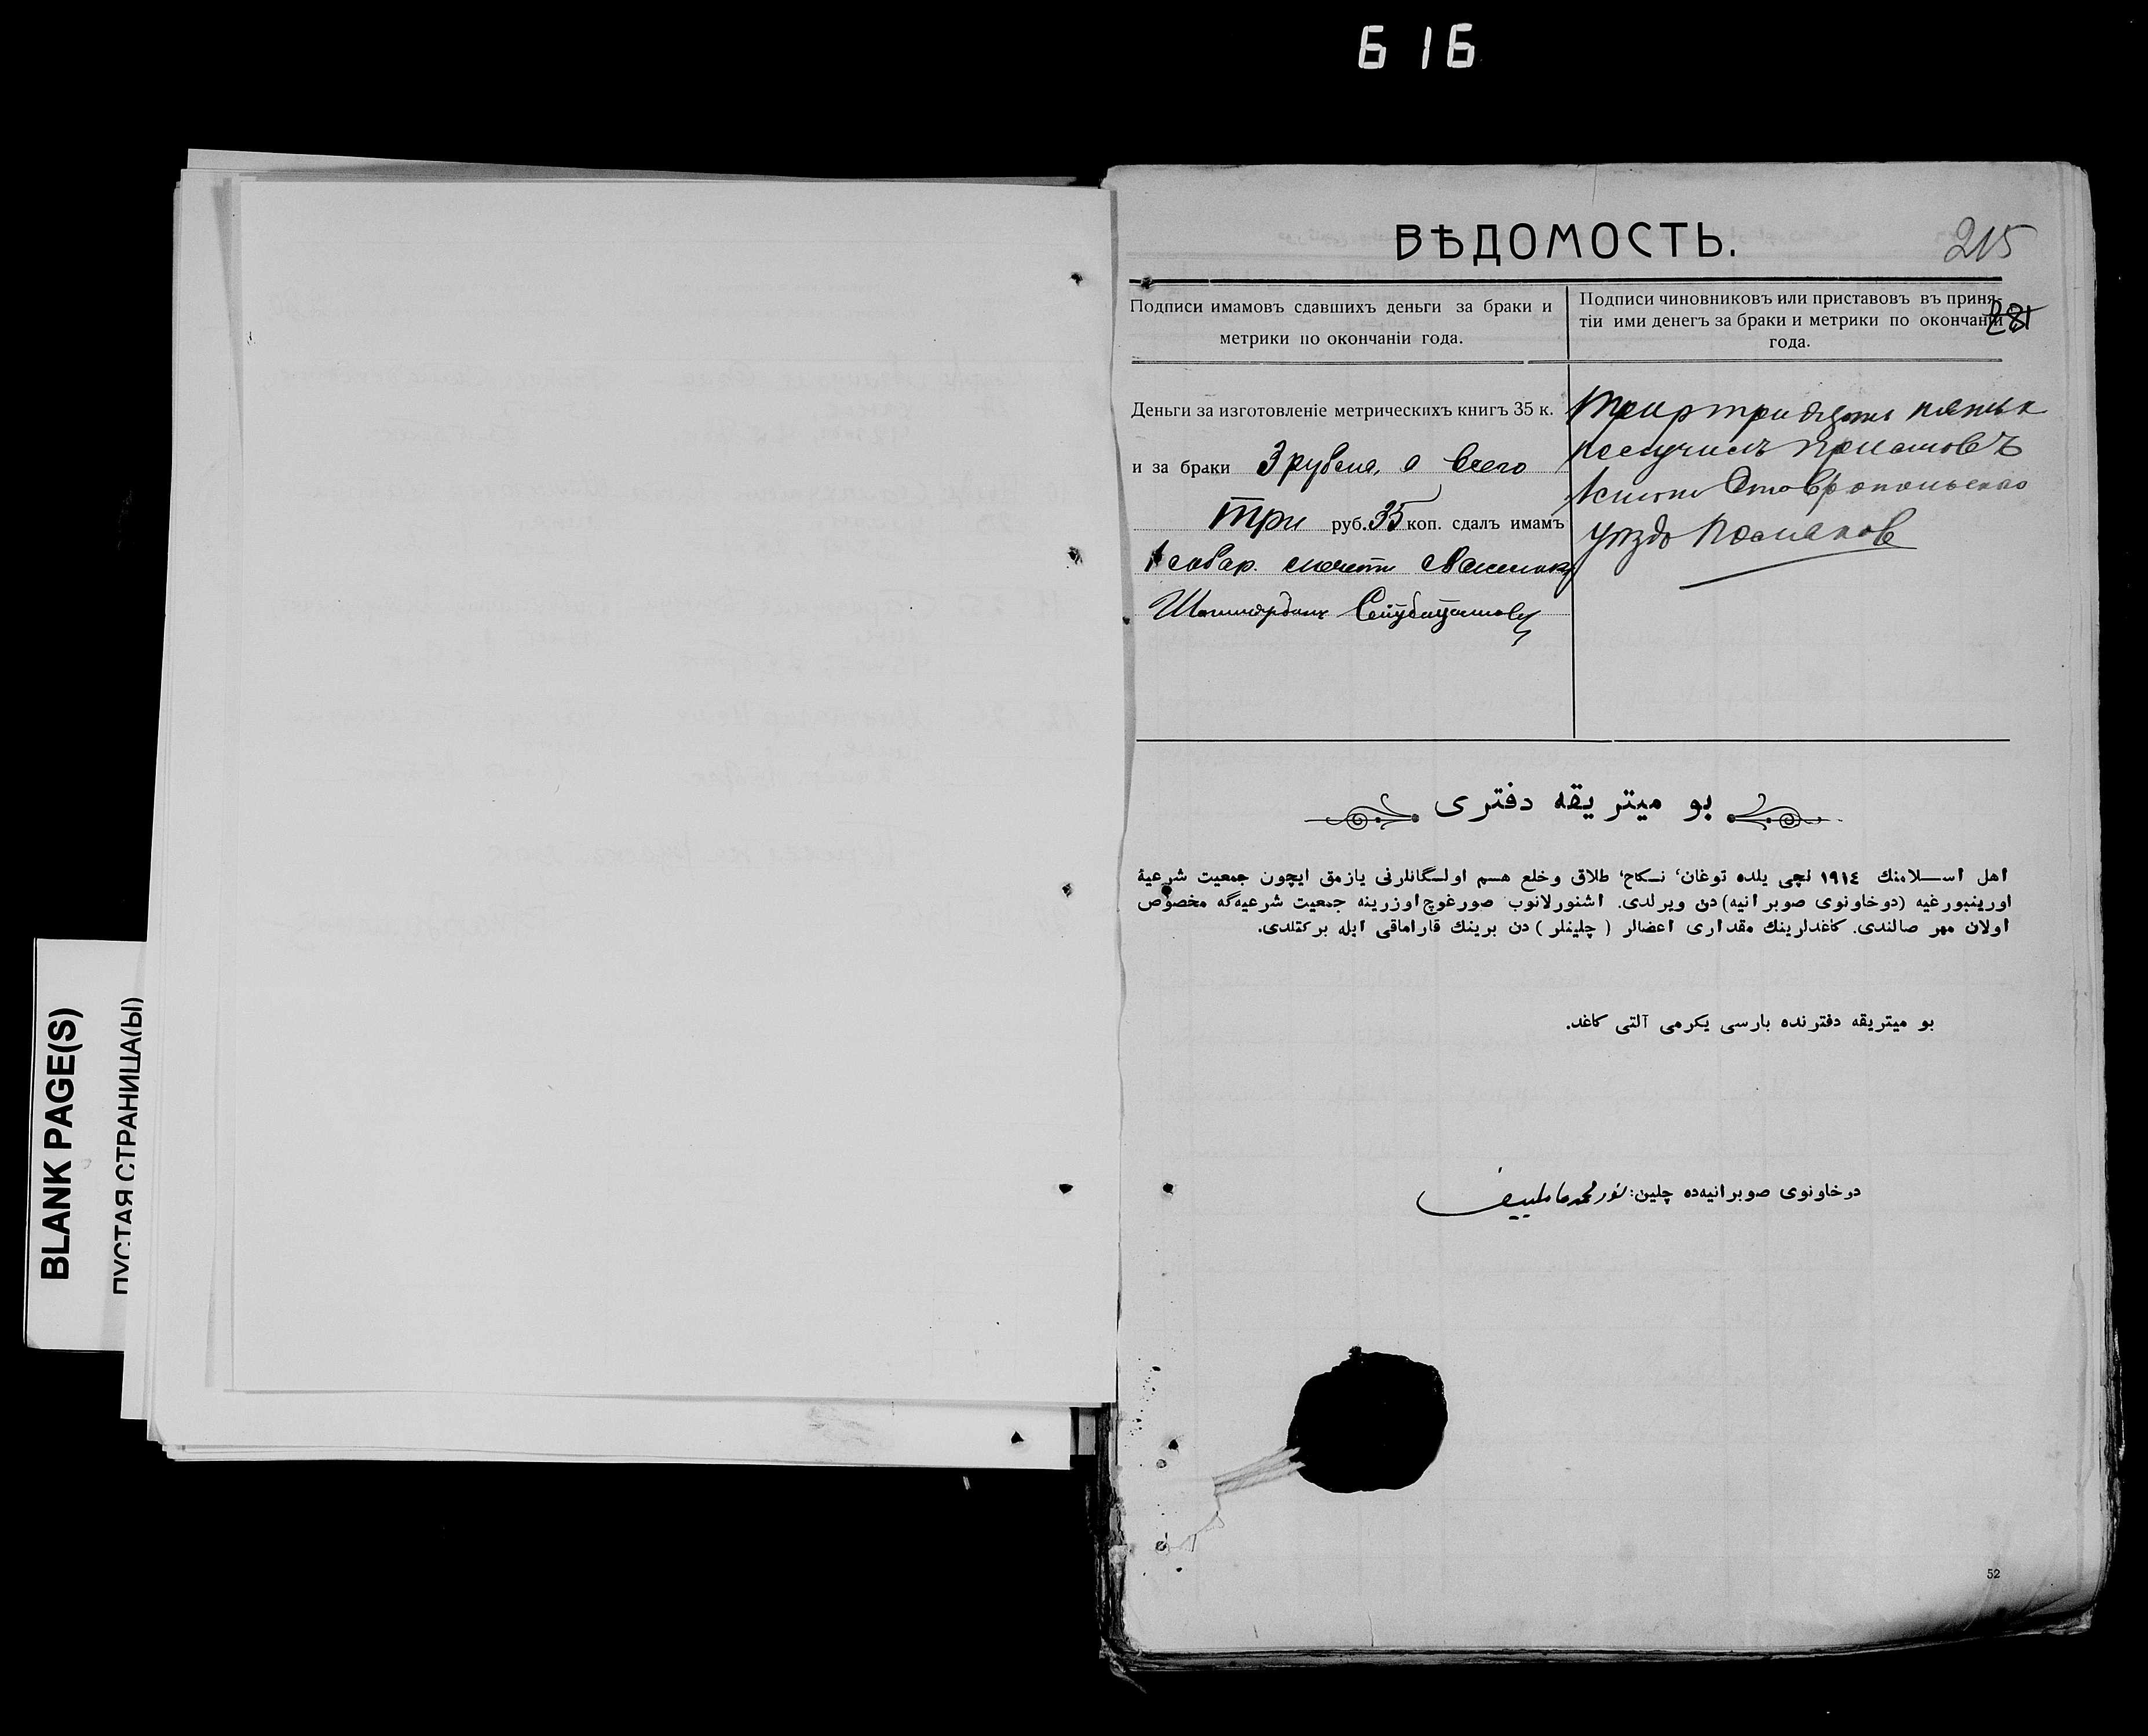 616
BLANK PAGE(S)
ПУСТАЯ СТРАНИЦА(Ы)
ВѢДОМОСТЬ.
215
281
Подписи имамовъ сдавшихъ деньги за браки и
метрики по окончаніи года.
Подписи чиновниковъ или приставовъ въ приня-
тіи ими денегъ за браки и метрики по окончаніи
года.
Деньги за изготовленіе метрическихъ книгъ 35 к.
и за браки 3 рубля, а всего
три руб. 35 коп. сдалъ имамъ
1 собар. мечети
три р тридцать пять к
получилъ Приставъ
1 Ставропольскаго
уѣзда
بو میتریقه دفتری
اهل اسلامنك ١٩١٤ نچی یلده توغان، نکاح، طلاق وخلع هم اولگانلرنی یازمق ایچون جمعیت شرعیهٔ
اورینبورغیه (دوخاونوی صوبرانیه) دن ویرلدی. اشنورلانوب صورغوچ اوزرینه جمعیت شرعیه‌گه مخصوص
اولان مهر صالندی. کاغدلرینك مقداری اعضالر (چلینلر) دن برینك قاراماقی ایله برکتلدی.
بو میتریقه دفترنده بارسی یکرمی آلتی کاغد.
دوخاونوی صوبرانیه‌ده چلین:
52